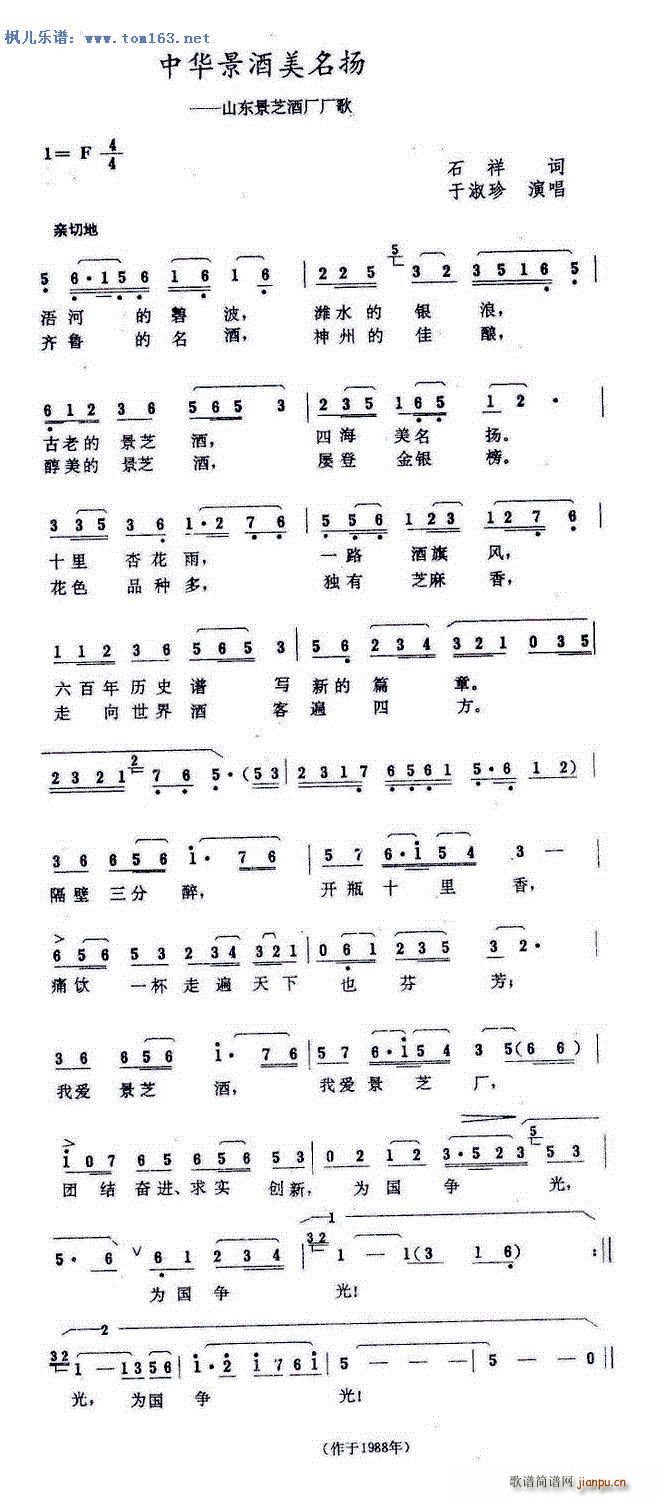 枫儿乐谱：www.tom163.net
中华景酒美名扬
——山东景芝酒厂厂歌
1= F 4/4
石祥 词
于淑珍 演唱
亲切地
5 6·156 16 1 6 | 225 5 32 3516 5 |
浯河的碧波， 潍水的银浪，
齐鲁的名酒， 神州的佳酿，
612 36 565 3 | 235 165 12· |
古老的景芝酒， 四海美名扬。
醇美的景芝酒， 屡登金银榜。
335 36 1·276 | 556 123 127 6 |
十里杏花雨， 一路酒旗风，
花色品种多， 独有芝麻香，
112 36 565 3 | 56 234 321 035 |
六百年历史谱写新的篇章。
走向世界酒客遍四方。
2321 2 76 5·(53 | 2317 6561 5·6 12) |
36 656 1·76 | 57 6·154 3 — |
隔壁三分醉， 开瓶十里香，
> 656 53 234 321 | 061 235 32· |
痛饮一杯走遍天下也芬芳；
36 656 1·76 | 57 6·154 35(66) |
我爱景芝酒， 我爱景芝厂，
> 107 65 656 53 | 02 12 3·523 5 53 |
团结奋进、求实创新， 为国争光，
5· 6 ∨ 61 234 | 1 32 1 — 1(3 16) :||
为国争光！
2
32 1 — 1356 | 1·2 1761 | 5 — — — | 5 — 0 ||
光，为国争光！
（作于1988年）
歌谱简谱网
jianpu.cn